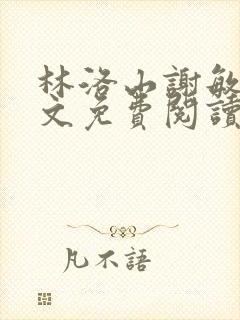 林洛山謝敏
文免費閱讀
凡不語